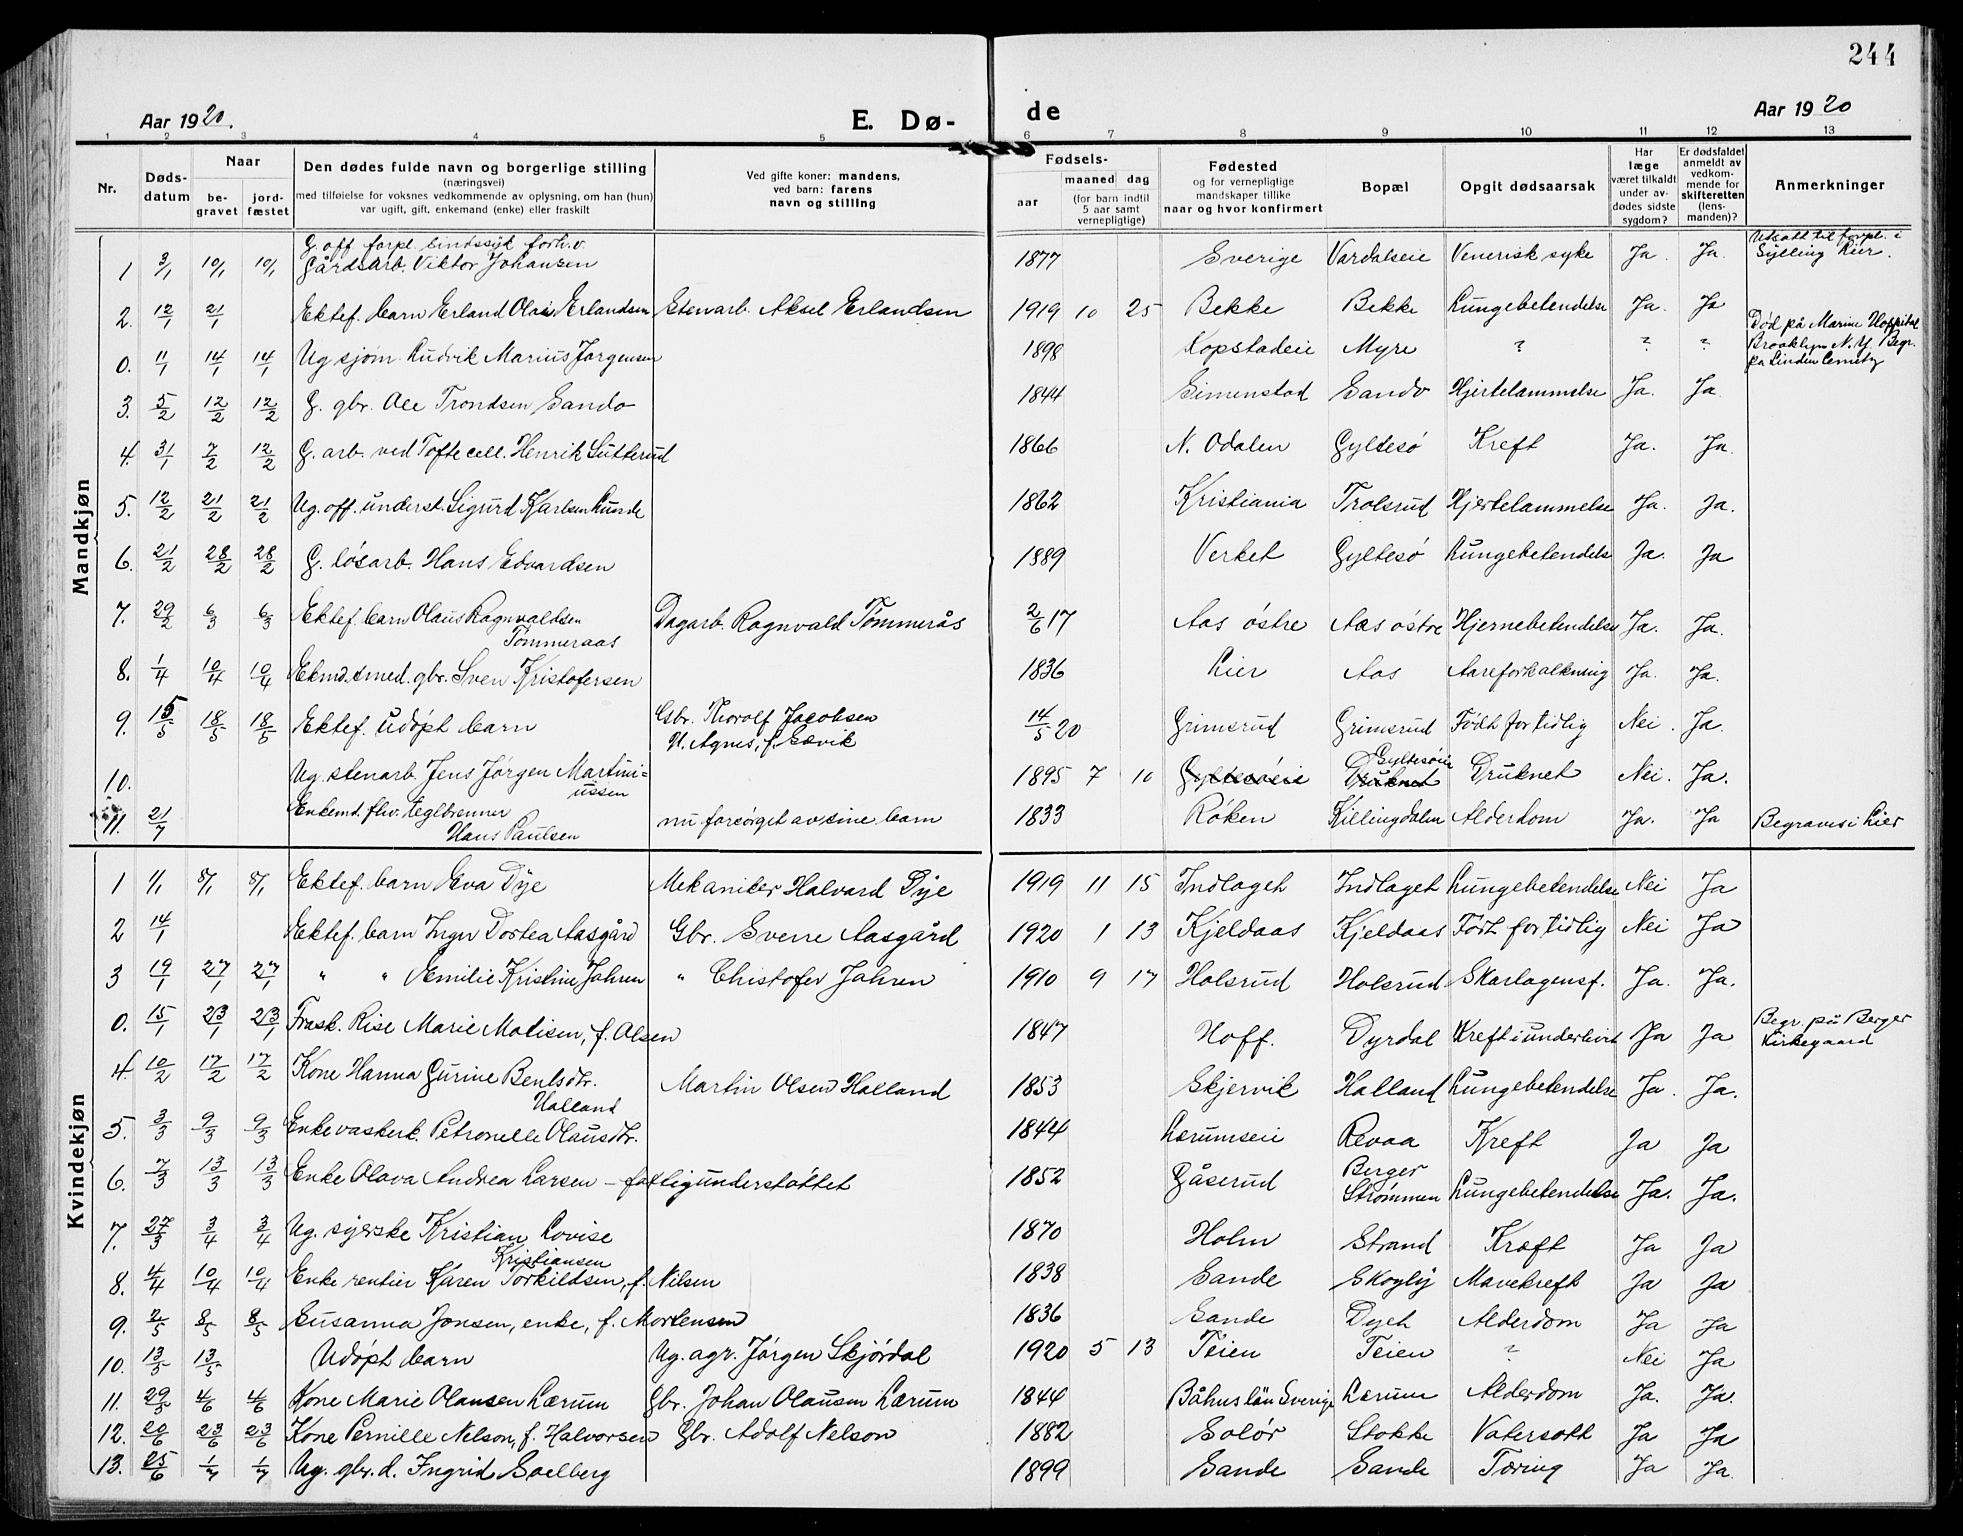 244
Aar 1920.
E. Dø-
de
Aar 1920
1 2 3 4 5 6 7 8 9 10 11 12 13
Nr.
Døds-
datum
Naar
be-
gravet
jord-
fæstet
Den dødes fulde navn og borgerlige stilling
(næringsvei)
med tilføielse for voksnes vedkommende av oplysning, om han (hun)
var ugift, gift, enkemand (enke) eller fraskilt
Ved gifte koner: mandens,
ved barn: farens
navn og stilling
Fødsels-
aar
maaned dag
(for barn indtil
5 aar samt
vernepligtige)
Fødested
og for vernepligtige
mandskaper tillike
naar og hvor konfirmert
Bopæl
Opgit dødsaarsak
Har
læge
været tilkaldt
under av-
dødes sidste
sygdom?
Er dødsfaldet
anmeldt av
vedkom-
mende for
skifteretten
(lens-
manden)?
Anmerkninger
Mandkjøn
G. off. forpl. sindssyk forh.v. Utsatt til forpl. i
1 3/1 10/1 10/1 Gårdsarb. Viktor Johansen 1877 Sverige Vardalseie Venerisk syke Ja. Ja. Sylling Lier.
2. 12/1 21/1 Ektef. barn Erland Olai Erlandsen Stenarb. Aksel Erlandsen 1919 10 25 Bekke Bekke Lungebetendelse Ja. Ja
Død på Marine Hospital
0. 11/1 14/1 14/1 Ug sjøm. Ludvik Marius Jørgensen 1898 Kopstadeie Myre ? ? ? Brooklyn N.Y. Begr.
på Linden Cemety
3. 5/2 12/2 12/2 G. gbr. Ole Trondsen Sando 1844 Simenstad Sando Hjertelammelse Ja. Ja.
4. 31/1 7/2 12/2 G. arb. ved Tofte cell. Henrik Sutterud 1866 N. Odalen Gyltesø Kreft Ja. Ja.
5. 12/2 21/2 21/2 Ug. off. underst. Sigurd Karlsen Lunde 1862 Kristiania Trolsrud Hjertelammelse Ja. Ja.
6. 21/2 28/2 28/2 G. løsarb. Hans Edvardsen 1889 Verket Gyltesø Lungebetendels Ja. Ja
7. 29/2 6/3 6/3 Ektef. barn Olaus Ragnvaldsen Dagarb. Ragnvald Tømmerås 2/6 17 Aas østre Aas østre Hjernebetendelse Ja. Ja.
Tømmeraas
8. 1/4 10/4 10/4 Ekmd. smed. gbr. Sven Kristofersen 1836 Lier Aas Aareforkalkning Ja. Ja.
9. 15/5 18/5 18/5 Ektef. udøpt barn Gbr. Thorolf Jacobsen 14/5 20 Grimsrud Grimsrud Født for tidlig Nei. Ja.
H. Agnes, f. Sævik
10. Ug. stenarb. Jens Jørgen Martini- 1895 7 10 Gyltesøeie Druknet Gyltesøeie Druknet Nei. Ja.
ussen
11. 21/7 Enkemd. fhv. teglbrenner 1833 Røken Killingdalen Alderdom Ja. Ja Begraves i Lier
Hans Paulsen nu forsørget av sine barn
Kvindekjøn
1 1/1 8/1 8/1 Ektef. barn Eva Dye Mekaniker Halvard Dye 1919 11 15 Indlaget Indlaget Lungebetendelse Nei Ja
2 14/1 Ektef. barn Inger Dortea Aasgård Gbr. Sverre Aasgård 1920 1 13 Kjeldaas Kjeldaas Født for tidlig Nei Ja
3 19/1 27/1 27/1 " " Emilie Kristine Jahren " Christofer Jahren 1910 9 17 Holsrud Holsrud Skarlagensf. Ja. Ja.
0. 15/1 23/1 23/1 Frask. Rise Marie Madisen, f. Olsen 1847 Hoff. Dyrdal Kreft i underlivet Ja Ja Begr. på Berger
Kirkegaard
4. 10/2 17/2 17/2 Kone Hanna Gurine Bentsdtr. Martin Olsen Halland 1853 Skjervik Halland Lungebetendelse Ja. Ja.
Halland
5. 3/3 9/3 9/3 Enke vaskerk. Petronelle Olausdtr. 1844 Lærumseie Revaa Kreft Ja Ja
6. 7/3 13/3 13/3 Enke Olava Andrea Larsen – fattigunderstøttet 1852 Gåserud Berger Strømmen Lungebetendelse Ja. Ja.
7. 27/3 3/4 3/4 Ug. syerske Kristian Lovise 1870 Holm Strand Kræft Ja Ja
Kristiansen
8. 4/4 10/4 10/4 Enke rentier Karen Torkildsen, f. Nilsen 1838 Sande Skogly Mavekreft Ja Ja
9. 2/5 8/5 8/5 Susanna Jonsen, enke, f. Mortensen 1836 Sande Dyet Alderdom Ja Ja
10. 13/5 13/5 Udøpt barn Ug. agr. Jørgen Skjørdal 1920 5 13 Teien Teien ? Nei Ja
11. 29/5 4/6 4/6 Kone Marie Olausen Lærum Gbr. Johan Olausen Lærum 1844 Båhus län Sverige Lærum Alderdom Ja. Ja.
12. 20/6 23/6 23/6 Kone Pernille Nelson, f. Halvorsen Gbr. Adolf Nelson 1882 Solør Stokke Vatersott Ja Ja
13. 25/6 1/7 1/7 Ug. gbr.d. Ingrid Soelberg 1899 Sande Sande Tæring Ja Ja.